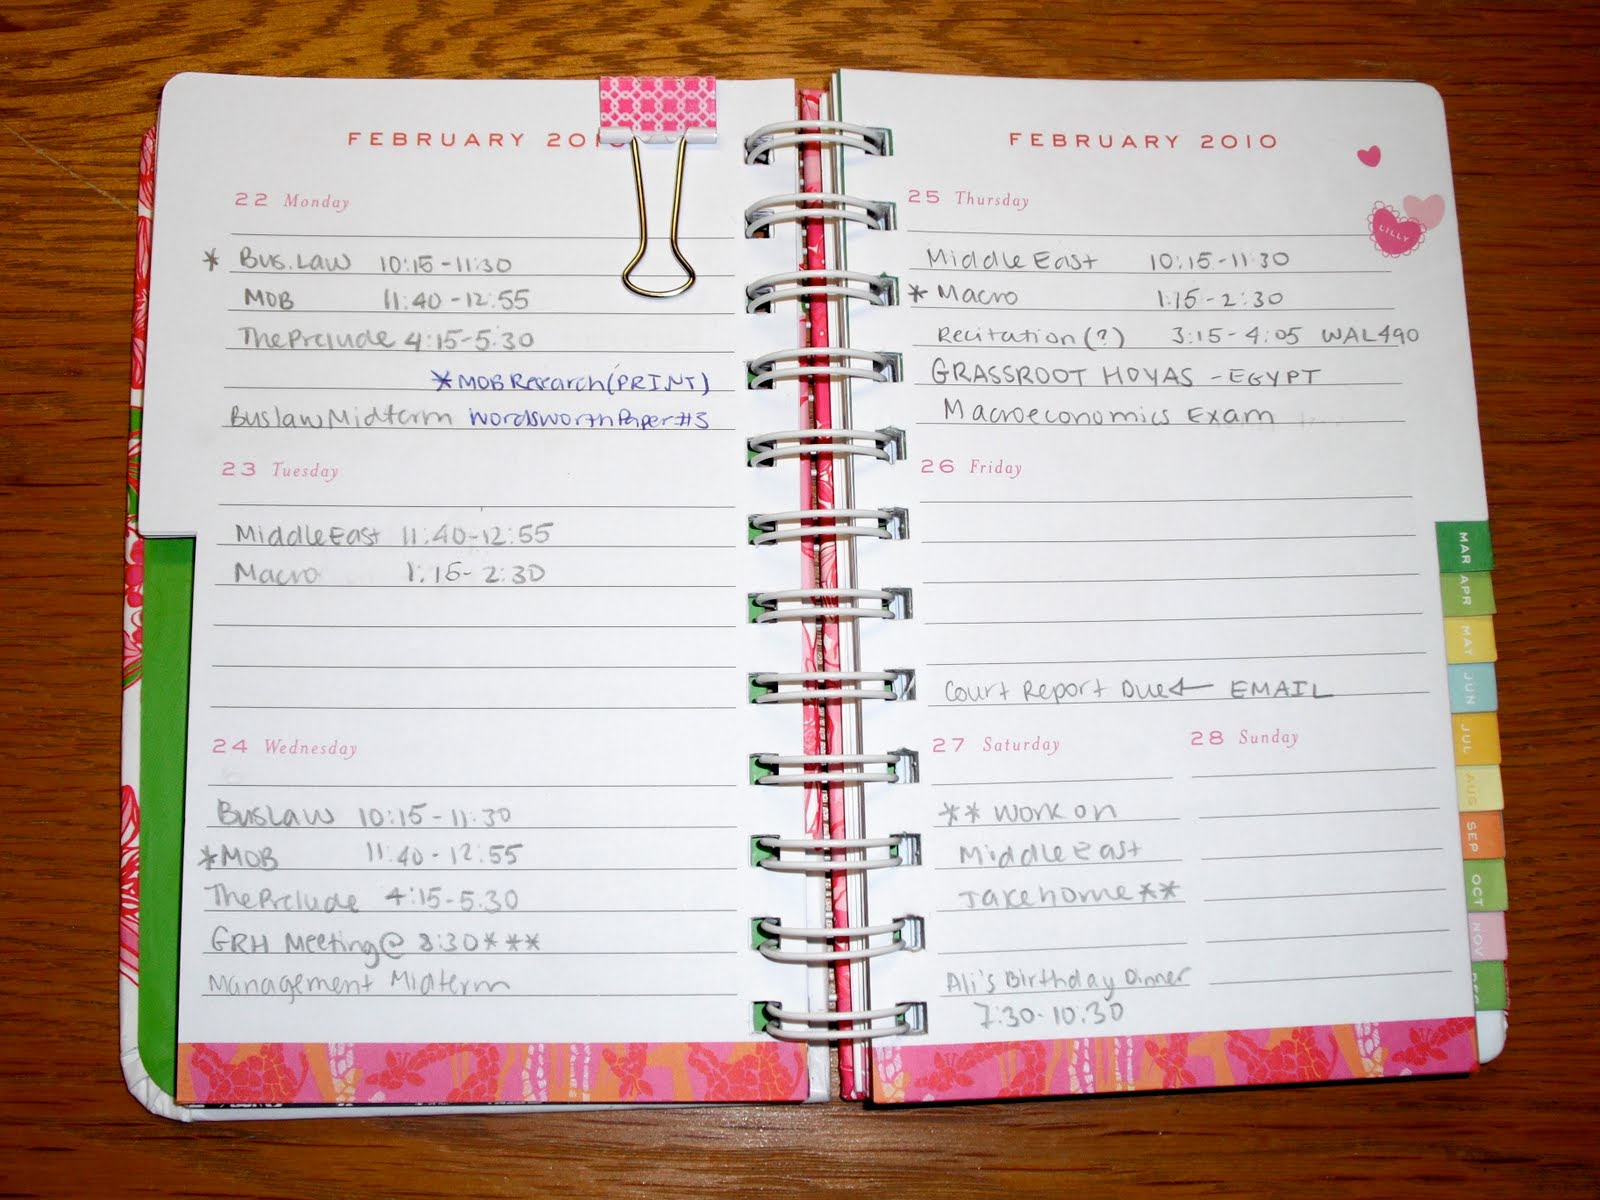 FEBRUARY 2010
22 Monday
* Bus.Law 10:15-11:30
MOB 11:40-12:55
The Prelude 4:15-5:30
*MOB Research (PRINT)
Buslaw Midterm Wordsworth Paper #3
23 Tuesday
Middle East 11:40-12:55
Macro 1:15-2:30
24 Wednesday
BusLaw 10:15-11:30
*MOB 11:40-12:55
The Prelude 4:15-5:30
GRH Meeting @ 8:30***
Management Midterm
FEBRUARY 2010
LILLY
25 Thursday
Middle East 10:15-11:30
* Macro 1:15-2:30
Recitation (?) 3:15-4:05 WAL490
GRASSROOT HOYAS - EGYPT
Macroeconomics Exam
26 Friday
Court Report Due ← EMAIL
27 Saturday
** Work on
Middle East
Takehome **
Ali's Birthday Dinner
7:30-10:30
28 Sunday
MAR
APR
MAY
JUN
JUL
AUG
SEP
OCT
NOV
DEC